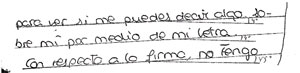 para ver si me puedes decir algo so-
bre mi por medio de mi letra.
Con respecto a la firma, no tengo